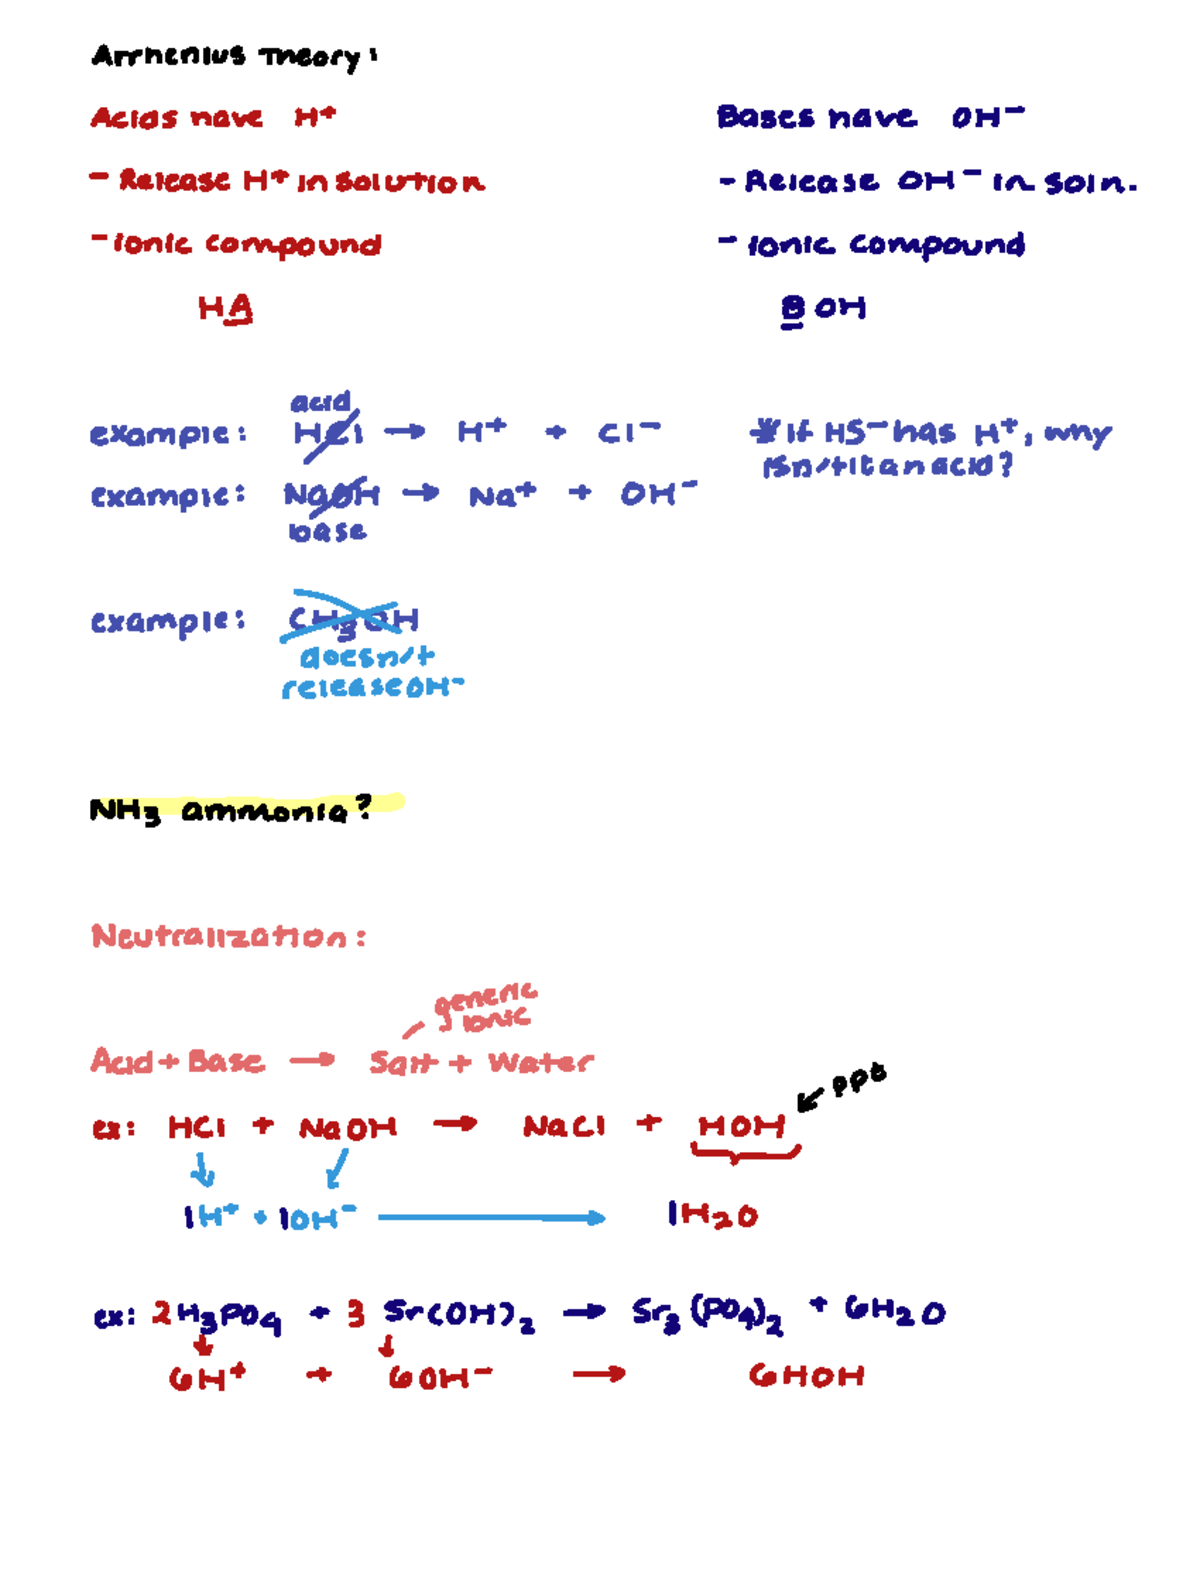 Arrhenius Theory:
Acids have H⁺
Bases have OH⁻
- Release H⁺ in solution
- Release OH⁻ in soln.
- Ionic compound
- Ionic compound
HA
BOH
acid
example: HCl → H⁺ + Cl⁻
* if HS⁻ has H⁺, why
isn't it an acid?
example: NaOH → Na⁺ + OH⁻
base
example: CH₃OH
doesn't
release OH⁻
NH₃ ammonia?
Neutralization:
generic
ionic
Acid + Base → Salt + Water
ppt
ex: HCl + NaOH → NaCl + HOH
1H⁺ + 1OH⁻ → 1H₂O
ex: 2H₃PO₄ + 3Sr(OH)₂ → Sr₃(PO₄)₂ + 6H₂O
6H⁺ + 6OH⁻ → 6HOH